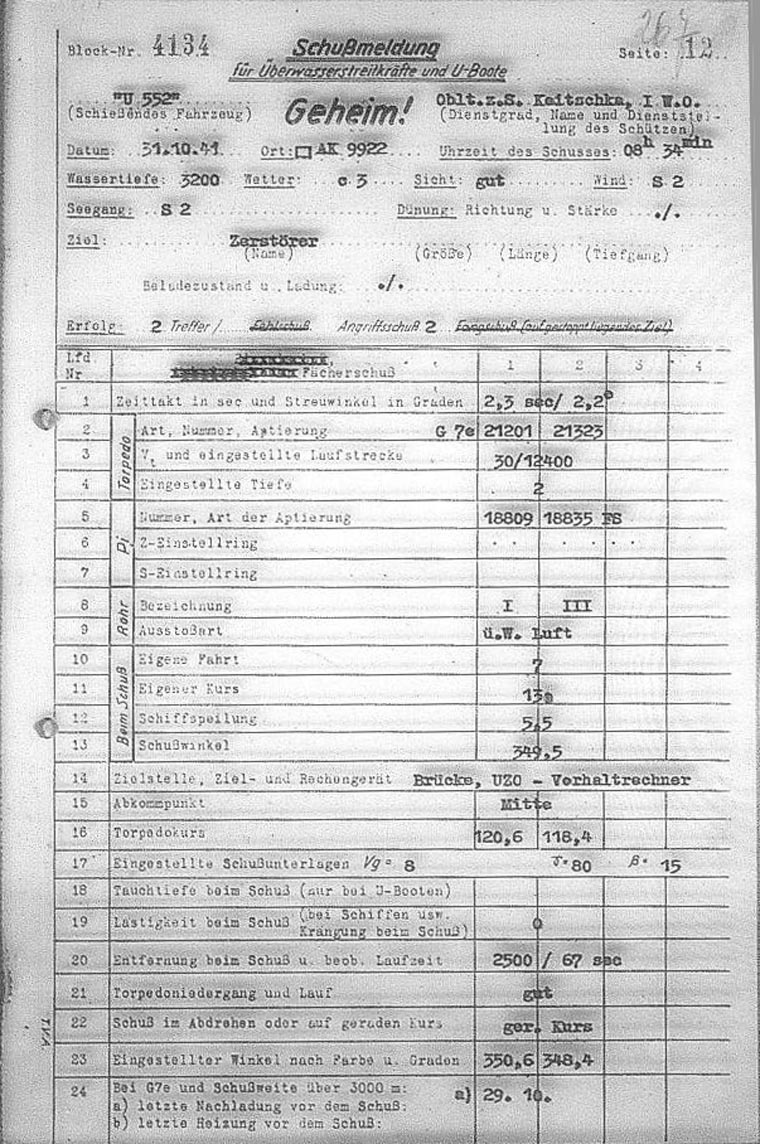 Block-Nr. 4134 Schußmeldung Seite: 12
für Überwasserstreitkräfte und U-Boote
"U 552" Geheim! Oblt.z.S. Keitschka, I W.O.
(Schießendes Fahrzeug) (Dienstgrad, Name und Dienststel-
lung des Schützen)
Datum: 31.10.41 Ort: AK 9922 Uhrzeit des Schusses: 08h 34min
Wassertiefe: 3200 Wetter: c 3 Sicht: gut Wind: S 2
Seegang: S 2 Dünung: Richtung u. Stärke ./.
Ziel: Zerstörer
(Name) (Größe) (Länge) (Tiefgang)
Beladezustand u. Ladung: ./.
Erfolg: 2 Treffer / Fehlschuß Angriffsschuß 2 Fangschuß (auf gestoppt liegendes Ziel)
Lfd
Nr Fächerschuß 1 2 3 4
1 Zeittakt in sec und Streuwinkel in Graden 2,3 sec/ 2,2°
Torpedo
2 Art, Nummer, Aptierung G 7e 21201 21323
3 Vt und eingestellte Laufstrecke 30/12400
4 Eingestellte Tiefe 2
Pi
5 Nummer, Art der Aptierung 18809 18835 FS
6 Z-Einstellring
7 S-Einstellring
Rohr
8 Bezeichnung I III
9 Ausstoßart ü.W. Luft
Beim Schuß
10 Eigene Fahrt 7
11 Eigener Kurs 130
12 Schiffspeilung 5,5
13 Schußwinkel 349,5
14 Zielstelle, Ziel- und Rechengerät Brücke, UZO - Vorhaltrechner
15 Abkommpunkt Mitte
16 Torpedokurs 120,6 118,4
17 Eingestellte Schußunterlagen Vg= 8 γ=80 β= 15
18 Tauchtiefe beim Schuß (nur bei U-Booten)
19 Lastigkeit beim Schuß (bei Schiffen usw.
Krängung beim Schuß) 0
20 Entfernung beim Schuß u. beob. Laufzeit 2500 / 67 sec
21 Torpedoniedergang und Lauf gut
22 Schuß im Abdrehen oder auf geraden Kurs ger. Kurs
23 Eingestellter Winkel nach Farbe u. Graden 350,6 348,4
24 Bei G7e und Schußweite über 3000 m:
a) letzte Nachladung vor dem Schuß: a) 29. 10.
b) letzte Heizung vor dem Schuß: